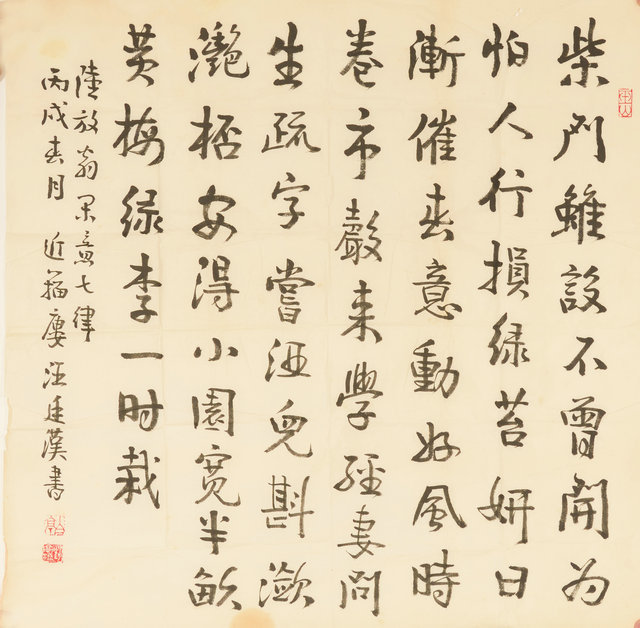 柴门雖設不曾開为
怕人行損绿苔妍日
漸催春意動好風時
卷市聲来學經妻問
生疏字嘗酒兒斟潋
灧桮安得小園寬半畝
黄梅绿李一时栽
陸放翁闲意七律
丙戌春月 近廔 汪廷漢書